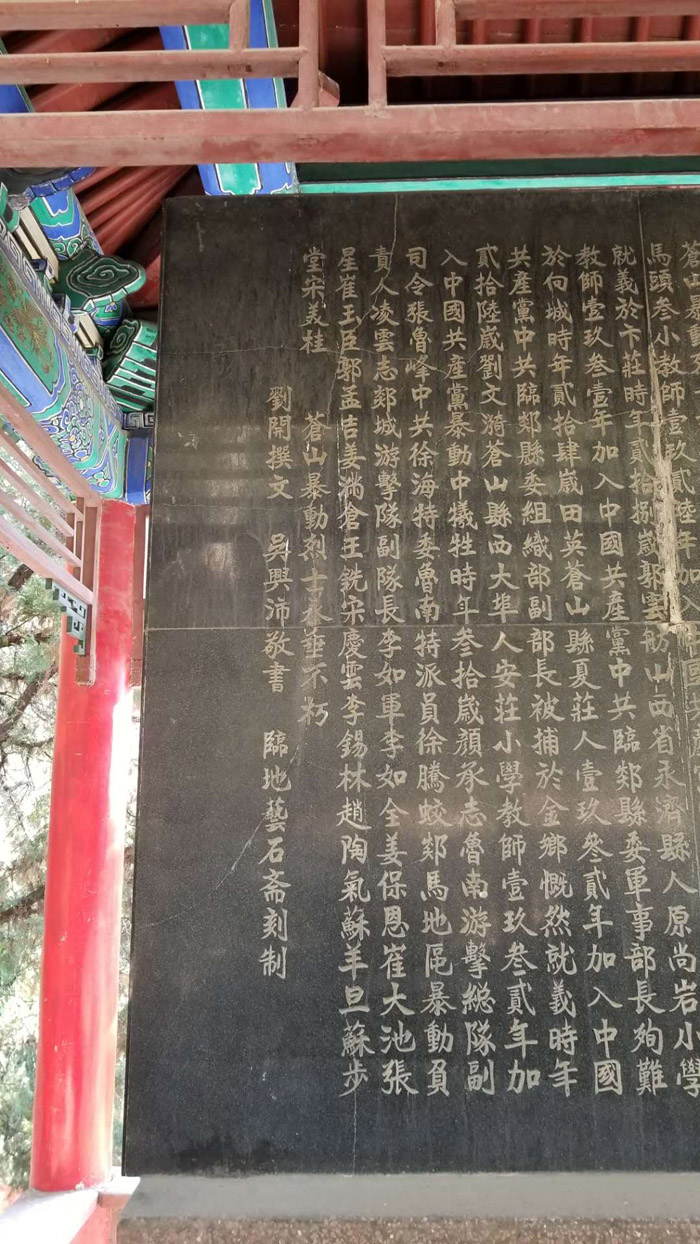 馬頭叁小教師壹玖貳陸年加
就義於卞莊時年貳拾捌歲郭雲舫山西省永濟縣人原尚岩小學
教師壹玖叁壹年加入中國共產黨中共臨郯縣委軍事部長殉難
於向城時年貳拾肆歲田英蒼山縣夏莊人壹玖叁貳年加入中國
共產黨中共臨郯縣委組織部副部長被捕於金鄉慨然就義時年
貳拾陸歲劉文漪蒼山縣西大埠人安莊小學教師壹玖叁貳年加
入中國共產黨暴動中犧牲時年叁拾歲顏承志魯南游擊總隊副
司令張魯峰中共徐海特委魯南特派員徐騰蛟郯馬地區暴動負
責人凌雲志郯城游擊隊副隊長李如軍李如全姜保恩崔大池張
星崔王臣郭孟吉姜滿倉王銑宋慶雲李錫林趙陶氣蘇羊旦蘇步
堂宋美桂 蒼山暴動烈士永垂不朽
劉開撰文 吳興沛敬書 臨地藝石斋刻制